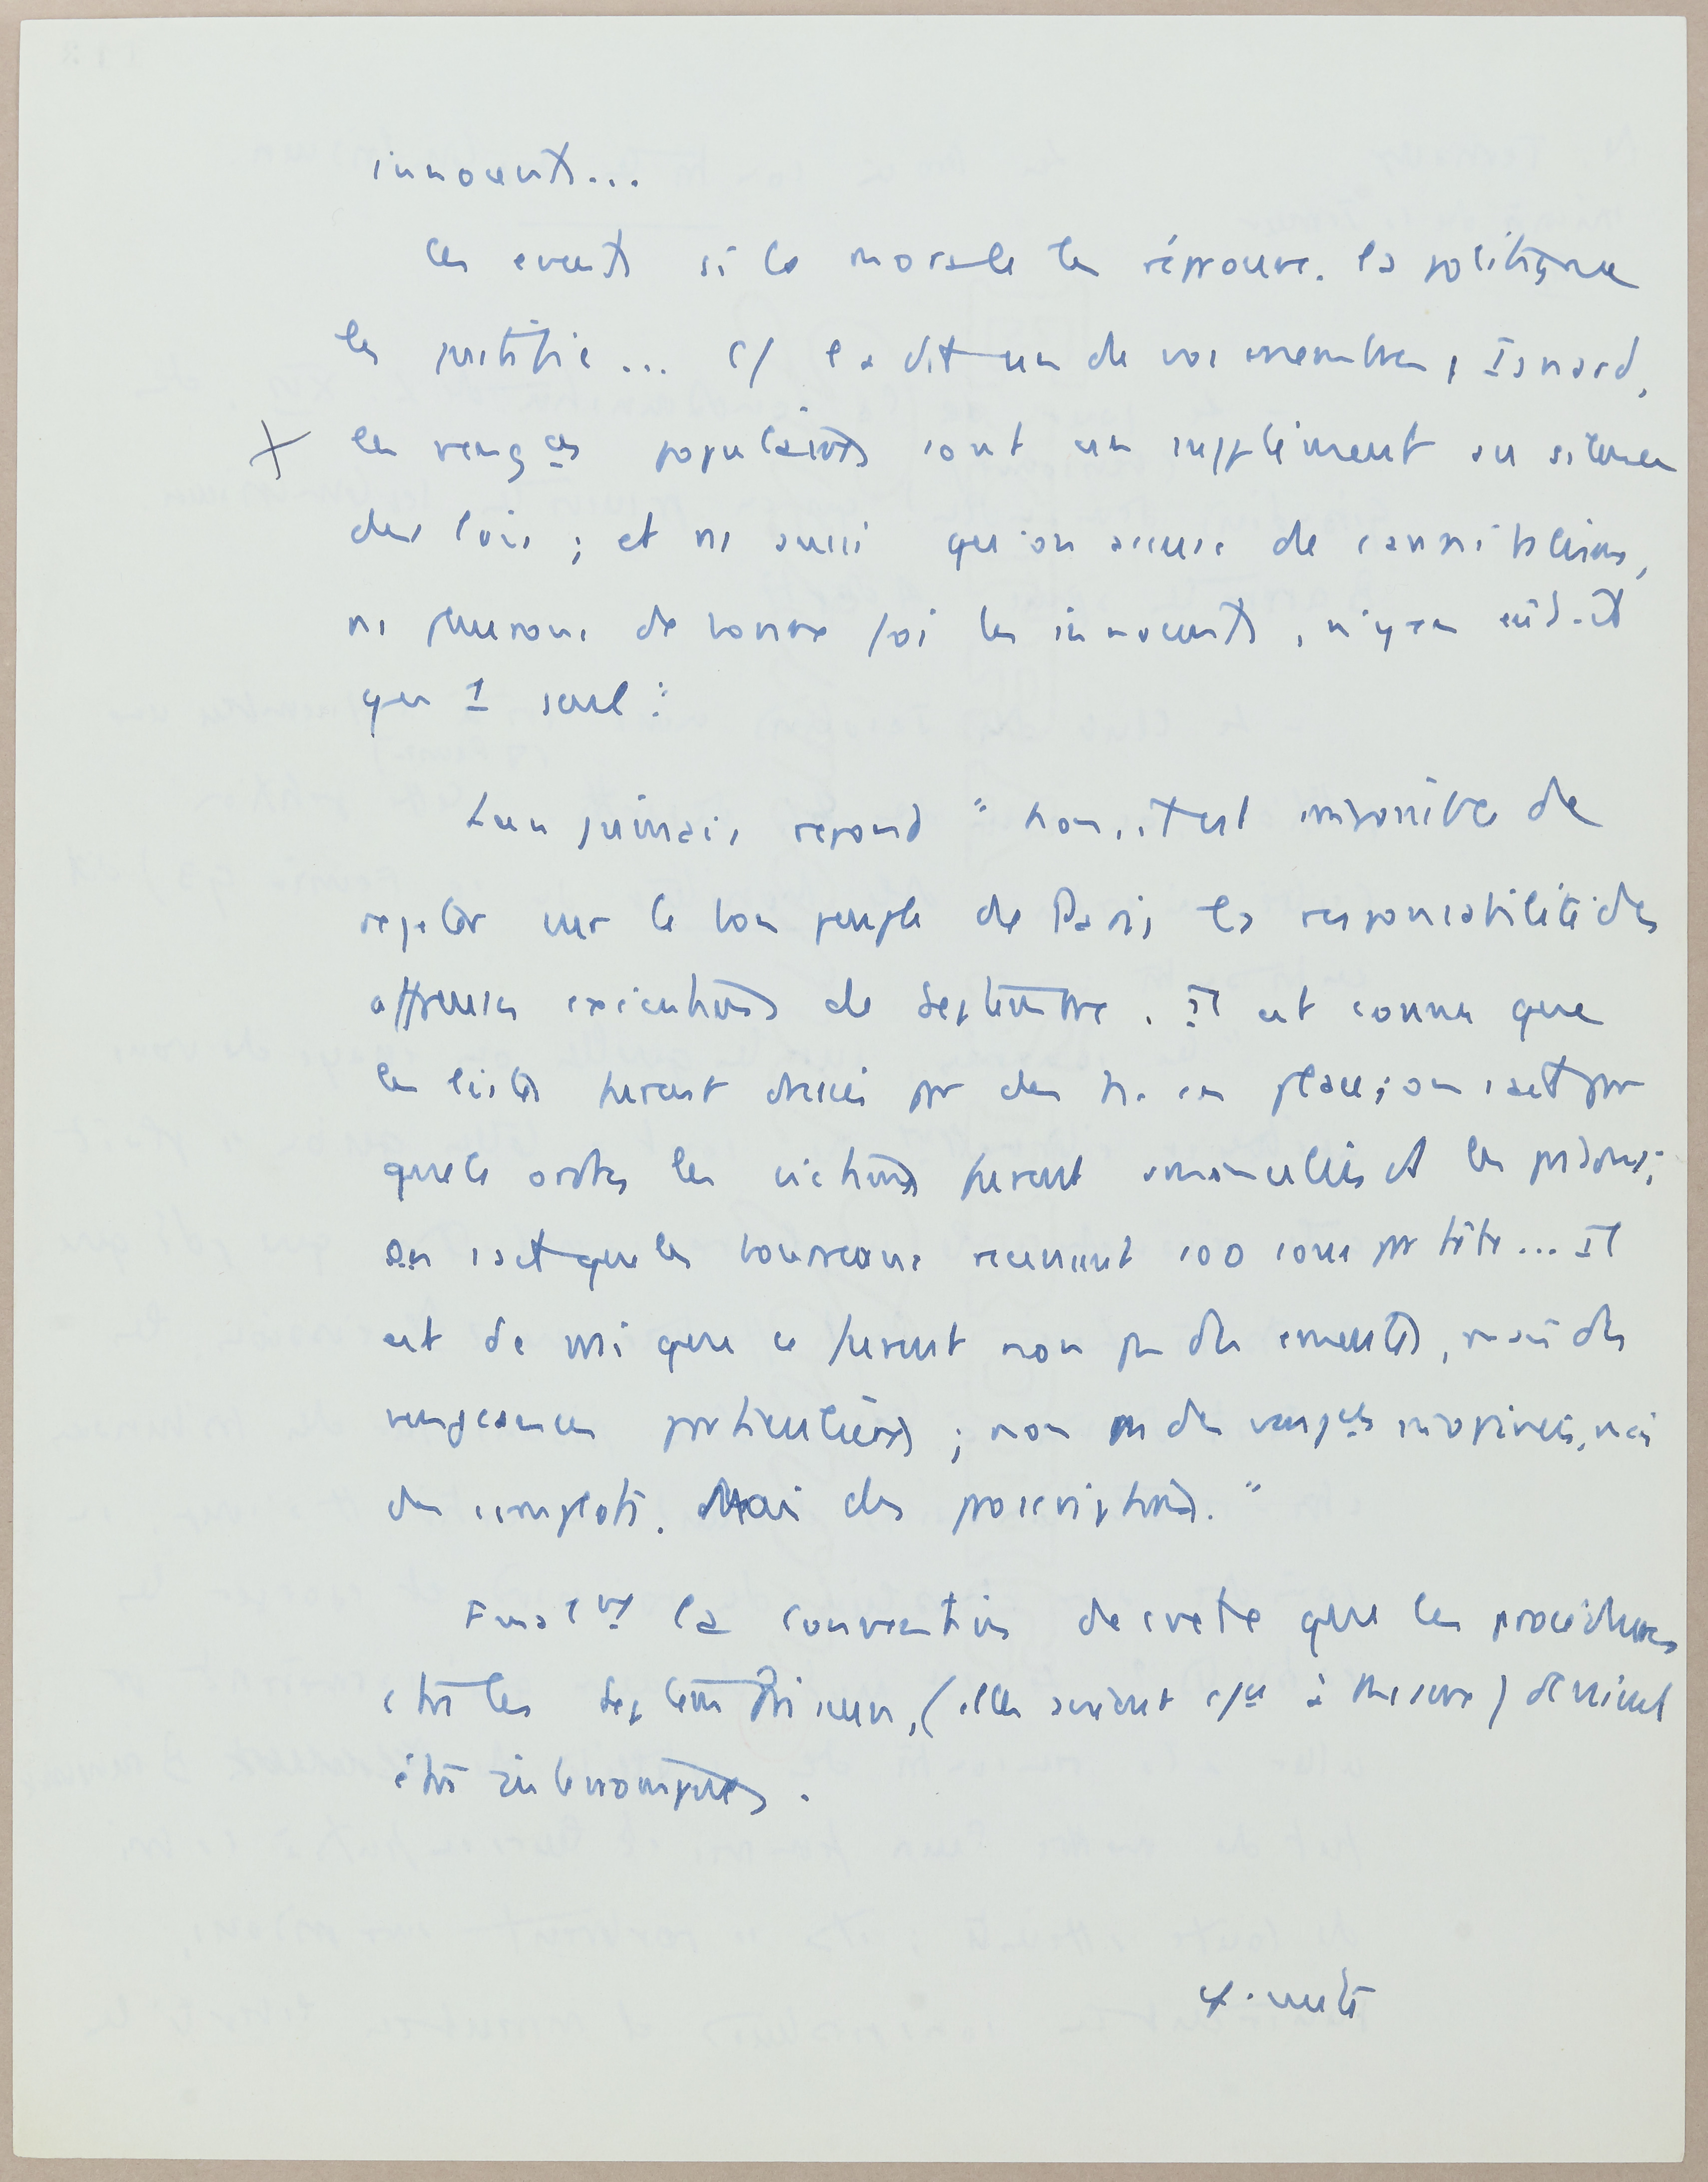 innocents...
Ces events si la morale les réprouve. la politique
les justifie... c/ l'a dit un de vos membres, Isnard,
les veng ces populaires sont un supplément au silence
des lois ; et ns aussi qu'on accuse de cannibalisme,
ns pleurons de bonne foi les innocents, n'y en eût-il
que 1 seul :
Lanjuinais repond " non, il est impossible de
rejeter sur le bon peuple de Paris la responsabilité des
affreuses exécutions de Septembre. Il est connu que
les listes furent par des h. en place ; on sait par
quels ordres les victimes furent ds les prisons ;
on sait que les bourreaux recurent 100 sous par tête... Il
est de que ce furent non pas des émeutes, mais des
vengeances particulières ; non pas des veng ces, mais
des complots. Mais des proscriptions."
Final nt la convention decrete que les procédures
ctre les Septembriseurs, (elles avaient à ) devaient
être interrompues.